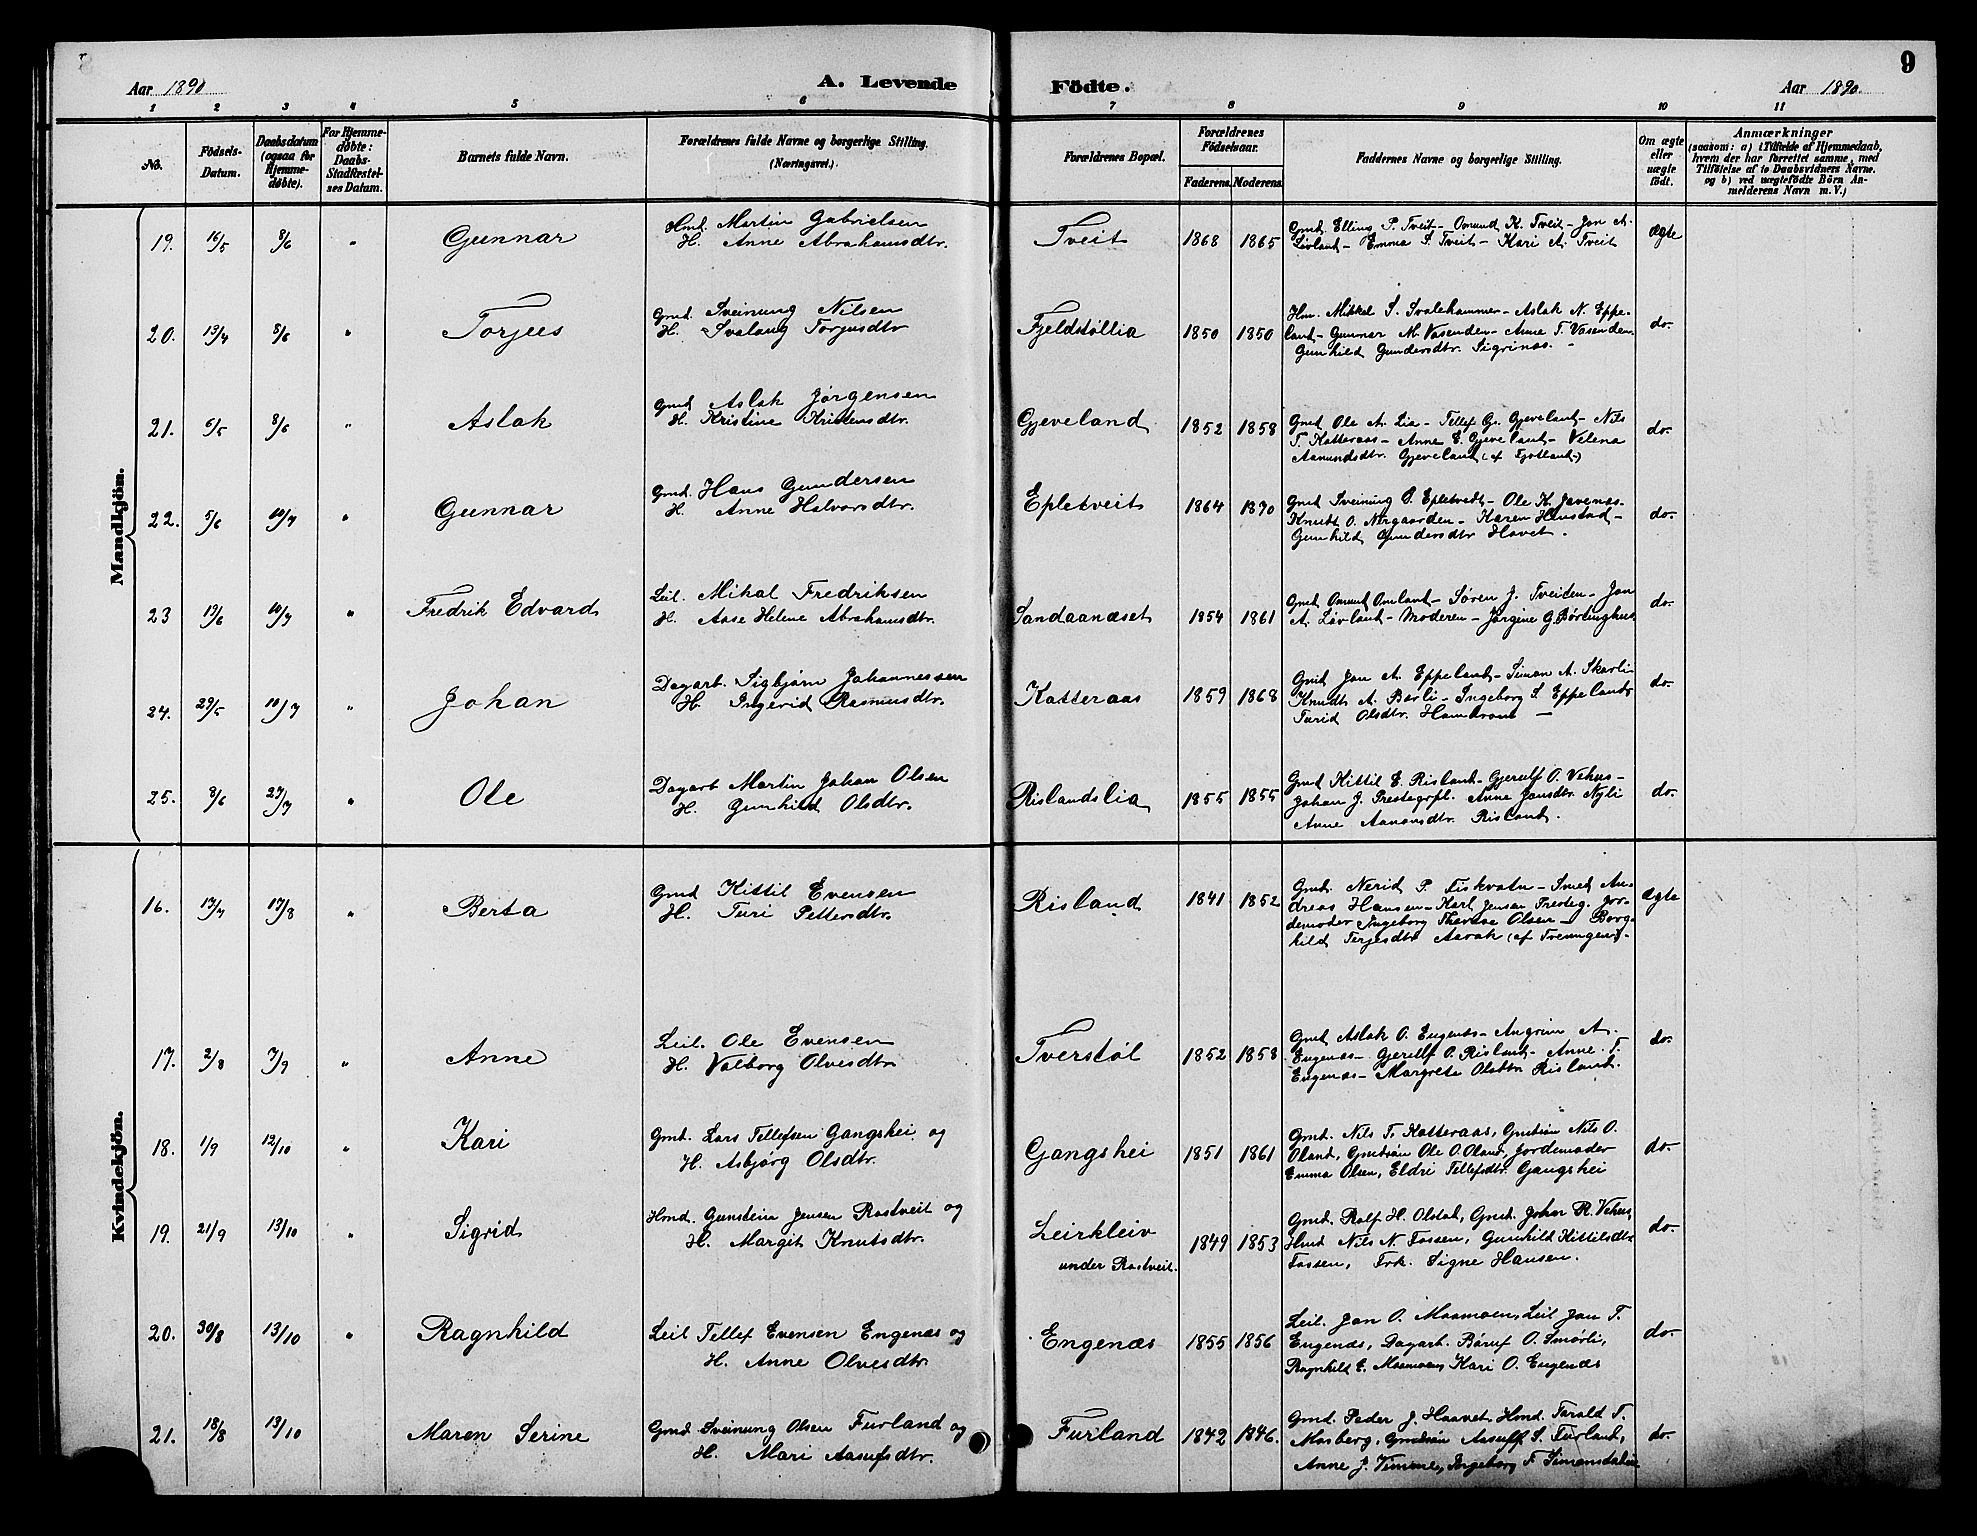 Aar 1890
A. Levende Födte.
Aar 1890.
9
1 2 3 4 5 6 7 8 9 10 11
No.
Födsels-Datum.
Daabsdatum (ogsaa for Hjemme-döbte).
For Hjemme-döbte: Daabs-Stadfæstel-ses Datum.
Barnets fulde Navn.
Forældrenes fulde Navne og borgerlige Stilling.
(Næringsvei.)
Forældrenes Bopæl.
Forældrenes Födselsaar.
Faderens. Moderens.
Faddernes Navne og borgerlige Stilling.
Om ægte eller uægte födt.
Anmærkninger
(saasom: a) i Tilfælde af Hjemmedaab,
hvem der har forrettet samme, med
Tilföielse af to Daabsvidners Navne.
og b) ved uægtefödte Börn An-
melderens Navn m. V.)
Mandkjön.
19. 16/5 8/6 " Gunnar
Hmd. Martin Gabrielsen
H. Anne Abrahamsdtr.
Tveit 1868 1865
Gmd. Elling P. Tveit - Omund K. Tveit - Jon A.
Livland - Emma S. Tveit - Kari A. Tveit
ægte
20. 13/4 8/6 " Torjees
Gmd. Sveinung Nilsen
H. Svalaug Torjusdtr
Fjeldstöllia 1850 1850
Hm. Mikkel S. Svalehammer - Aslak N. Eppe-
land - Gunnar M. Vasenden - Anne T. Vasenden
Gunhild Gundersdtr. Sigrinas. -
do.
21. 5/5 8/6 " Aslak
Gmd Aslak Jørgensen
H. Kristine Kristensdtr.
Gjeveland 1852 1858
Gmd Ole A. Lia - Tellef G. Gjeveland - Nils
T. Katteraas - Anne E. Gjeveland - Velena
Aamundsdtr. Gjeveland (af Fjotland-)
do.
22. 5/6 10/7 " Gunnar
Gmd. Hans Gundersen
H. Anne Halvorsdtr.
Epletveit 1864 1870
Gmd Sveinung G. Epletvedt - Ole K. Javenes.
Knudt O. Nergaarden - Karen Haustad -
Gunhild Gundersdtr Hovet.
do.
23 19/6 10/7 " Fredrik Edvard
Leil. Mikal Fredriksen
H. Aase Helene Abrahamsdtr.
Sandaanæset 1854 1861
Gmd Omund Omland - Søren J. Tveiden - Jon
A. Lavland - Moderen - Jørgine G. Børtinghus
do.
24. 29/5 10/7 " Johan
Dagarb. Sigbjørn Johannessen
H. Ingerid Rasmusdtr.
Katteraas 1859 1868
Gmd Jon A. Eppeland - Simon A. Skarli -
Knudt A. Barli - Ingeborg S. Eppeland
Turid Olsdtr. -
do.
25. 8/6 27/7 " Ole
Dagarb Martin Johan Olsen
H. Gunhild Olsdtr.
Rislandslia 1855 1855
Gmd Kittil E. Risland - Gjerulf O. Vehus -
Johan J. Prestegrpl. Anne Jonsdtr. Nyli
Anne Aanonsdtr. Risland.
do.
Kvindekjön.
16. 17/7 17/8 " Berta
Gmd Kittil Evensen
H. Turi Pettersdtr.
Risland 1841 1852
Gmd. Nerid P. Fiskvatn - Smed An-
dreas Hansen - Karl Jensen Presteg. Jor-
demoder Ingeborg Therese Olsen - Borg-
hild Terjesdtr Aarak (af Treungen).
Ægte
17. 2/8 7/9 " Anne
Leil. Ole Evensen
H. Valborg Olvesdtr
Tverstøl 1852 1858
Gmd Aslak O. Engenæs - Angrim A.
Engenæs - Gjerulf O. Risland - Anne T.
Engenæs - Margrete Olsdtr Risland.
do.
18. 1/9 12/10 " Kari
Gmd. Lars Tellefsen Gangshei og
H. Asbjørg Olsdtr.
Gangshei 1851 1861
Gmd. Nils T. Katteraas, Gmdsøn Nils O.
Oland, Gmdsøn Ole O. Oland, Jordemoder
Emma Olsen, Eldri Tellefsdtr. Gangshei
do.
19. 21/9 13/10 " Sigrid
Hmd. Gunstein Jensen Rostveit og
H. Margit Knutsdtr.
Leirkleiv
under Rostveit. 1849 1853
Gmd. Rolf H. Olstad, Gmd. John R. Vehus,
Hmd Nils N. Fossen, Gunhild Kittilsdtr
Fossen, Frk. Signe Hansen.
do.
20. 30/8 13/10 " Ragnhild
Leil Tellef Evensen Engenæs og
H. Anne Olvesdtr.
Engenæs 1855 1856
Leil. Jon O. Maamoen, Leil Jon T.
Engenæs, Dagarb. Børuf O. Smørli,
Ragnhild E. Maamoen, Kari O. Engenæs
do.
21. 18/8 13/10 Maren Serine
Gmd Sveinung Olsen Furland og
H. Mari Aasufsdtr.
Furland 1842 1846.
Gmd. Peder J. Haavet. Hmd. Tarald T.
Mosberg, Gmdsøn Aasuff S. Furland,
Anne J. Vimme, Ingeborg F. Simonsdalen
do.